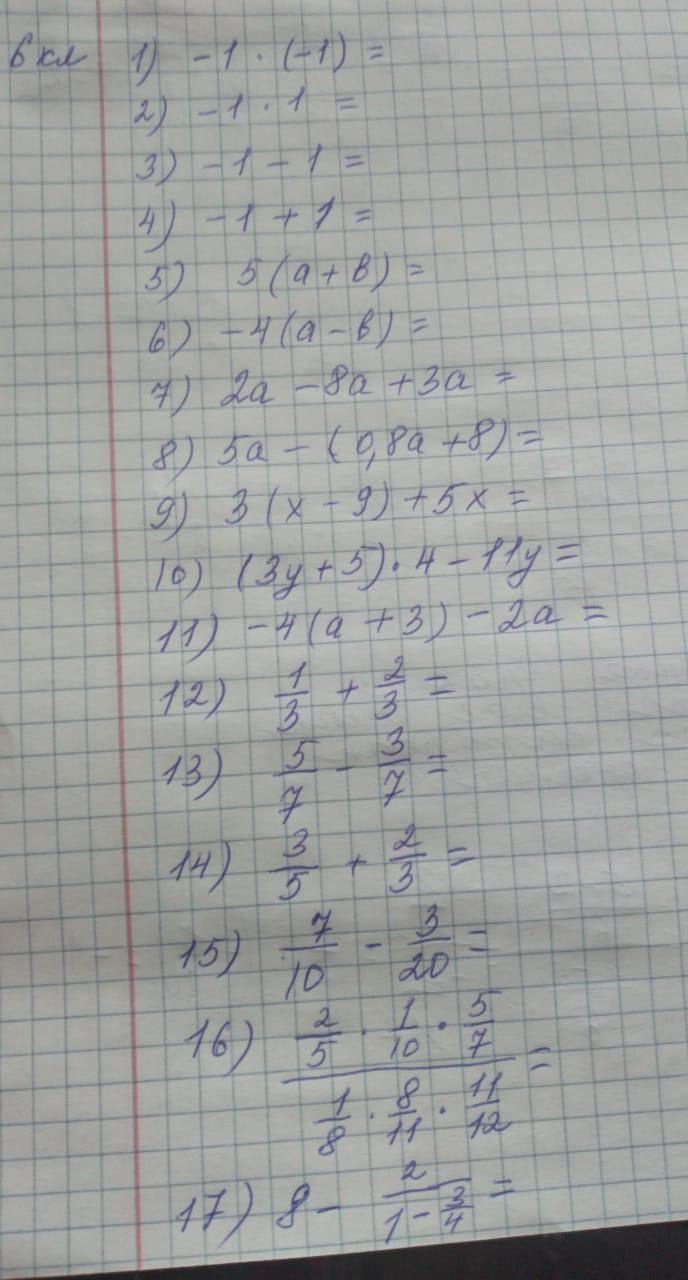 6 кл 1) -1 · (-1) =
2) -1 · 1 =
3) -1 - 1 =
4) -1 + 1 =
5) 5(a + в) =
6) -4(a - в) =
7) 2a - 8a + 3a =
8) 5a - (0,8a + 8) =
9) 3(x - 9) + 5x =
10) (3y + 5) · 4 - 11y =
11) -4(a + 3) - 2a =
12) 1/3 + 2/3 =
13) 5/7 - 3/7 =
14) 3/5 + 2/3 =
15) 7/10 - 3/20 =
16) (2/5 · 1/10 · 5/7) / (1/8 · 8/11 · 11/12) =
17) 8 - 2/(1 - 3/4) =